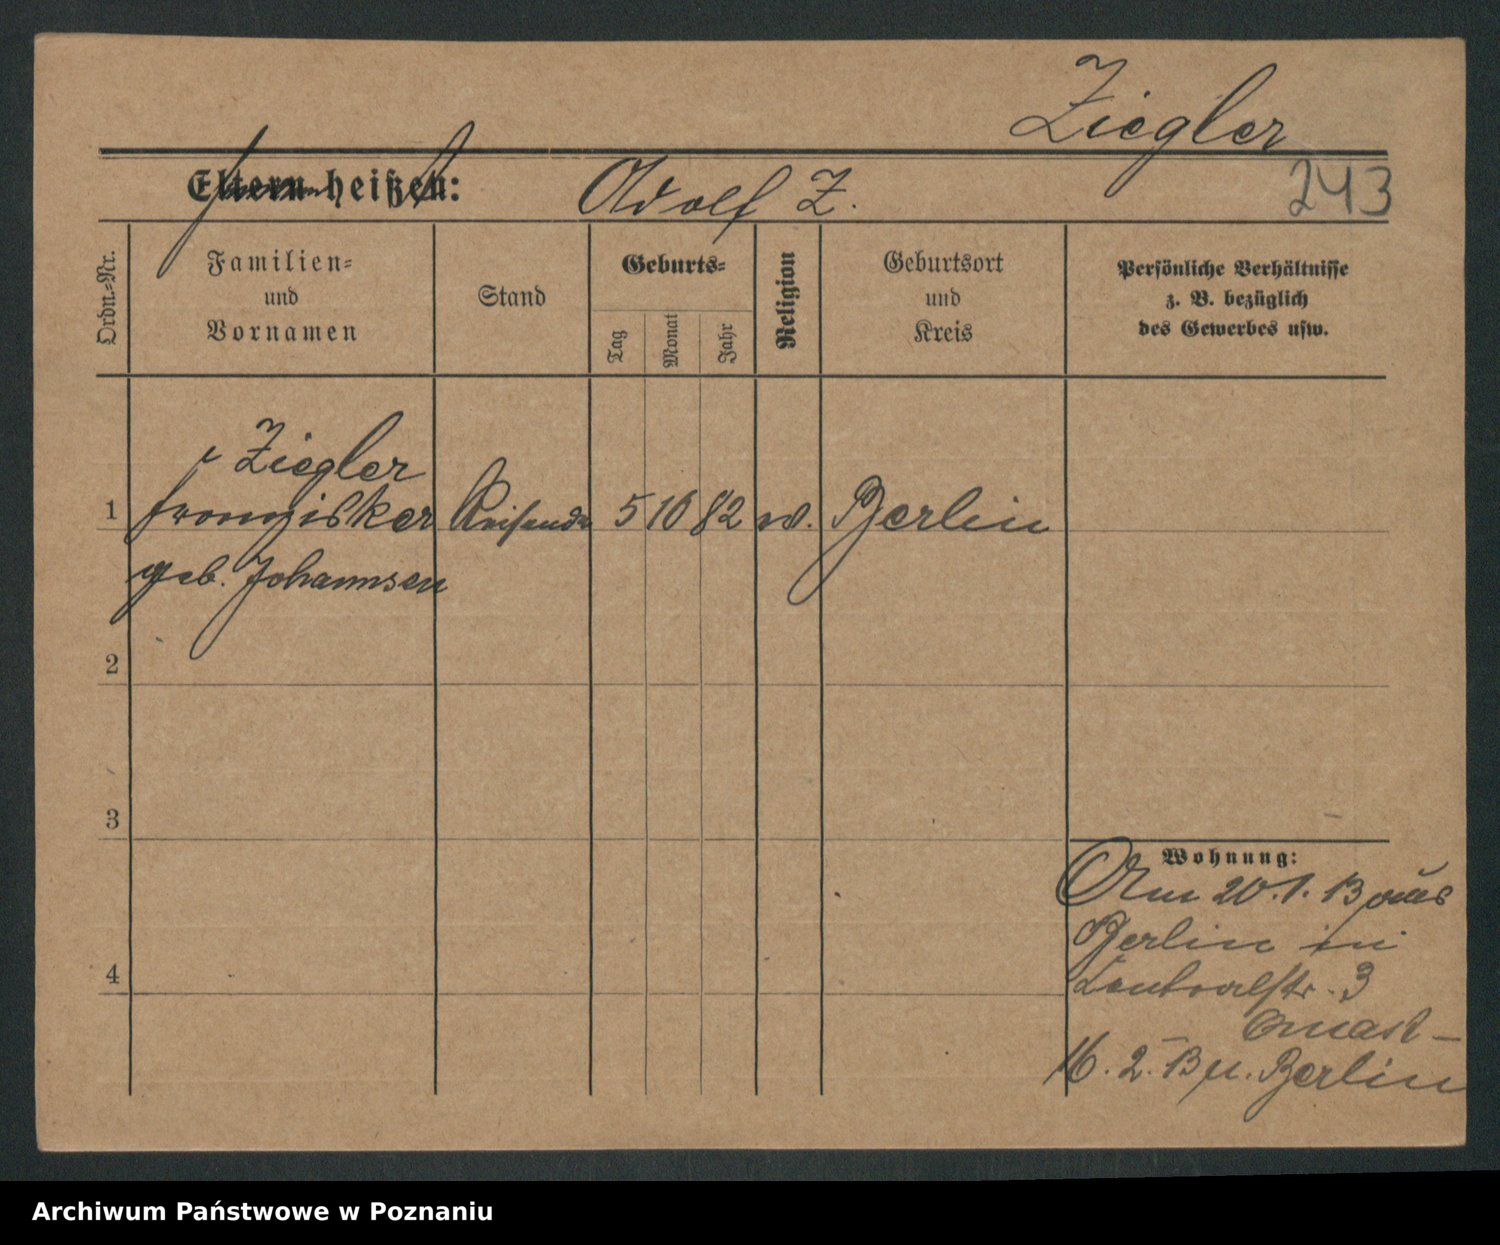 Ziegler
Eltern heißen: Adolf Z.
243
Ordn.=Nr.
Familien=
und
Vornamen
Stand
Geburts=
Tag
Monat
Jahr
Religion
Geburtsort
und
Kreis
Persönliche Verhältnisse
z. B. bezüglich
des Gewerbes usw.
Ziegler
1 Franzisker Reisende 5 10 82 Berlin
geb. Johannsen
2
3
4
Wohnung:
Am 20.1.13 aus
Berlin in
3
16.2.13 n. Berlin
Archiwum Państwowe w Poznaniu